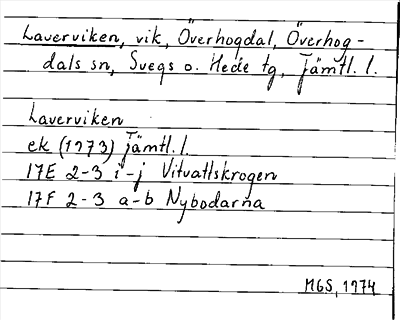 Laverviken, vik, Överhogdal, Överhog-
dals sn, Svegs o. Hede tg, Jämtl. l.
Laverviken
ek (1973) Jämtl. l.
17E 2-3 i-j Vitvattskrogen
17F 2-3 a-b Nybodarna
MGS, 1974